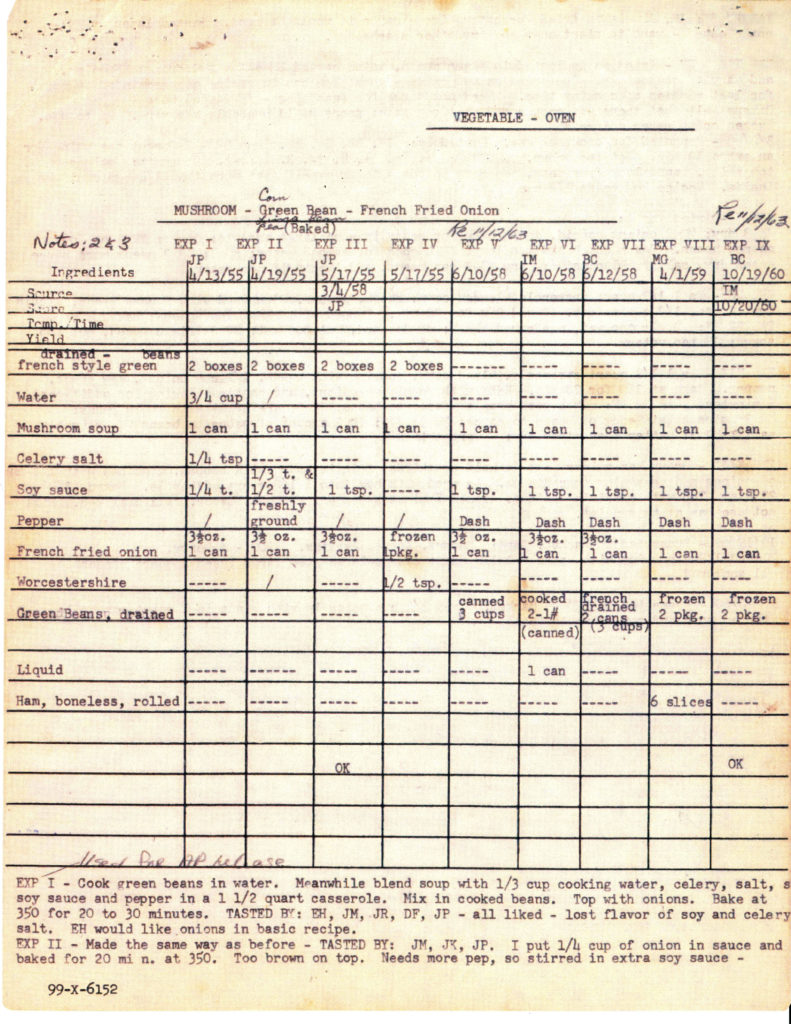 VEGETABLE - OVEN
Corn
MUSHROOM - Green Bean - French Fried Onion
Lima bean
Pea (Baked)
Re 11/12/63
Re 11/12/63
Notes; 2 & 3
EXP I EXP II EXP III EXP IV EXP V EXP VI EXP VII EXP VIII EXP IX
JP JP JP IM BC MG BC
Ingredients 4/13/55 4/19/55 5/17/55 5/17/55 6/10/58 6/10/58 6/12/58 4/1/59 10/19/60
Source 3/4/58 IM
Score JP 10/20/60
Temp./Time
Yield
drained - beans
french style green 2 boxes 2 boxes 2 boxes 2 boxes ------- ----- ----- ----- -----
Water 3/4 cup / ----- ----- ----- ----- ----- ----- -----
Mushroom soup 1 can 1 can 1 can 1 can 1 can 1 can 1 can 1 can 1 can
Celery salt 1/4 tsp ----- ----- ----- ----- ----- ----- ----- -----
1/3 t. &
Soy sauce 1/4 t. 1/2 t. 1 tsp. ----- 1 tsp. 1 tsp. 1 tsp. 1 tsp. 1 tsp.
freshly
Pepper / ground / / Dash Dash Dash Dash Dash
3½oz. 3½ oz. 3½oz. frozen 3½ oz. 3½oz. 3½oz.
French fried onion 1 can 1 can 1 can 1pkg. 1 can 1 can 1 can 1 can 1 can
Worcestershire ----- / ----- 1/2 tsp. ----- ----- ----- ----- -----
canned cooked french frozen frozen
Green Beans, drained ----- ----- ----- ----- 3 cups 2-1# drained 2 pkg. 2 pkg.
2 cans
(canned) (3 cups)
Liquid ----- ------ ----- ----- ----- 1 can ----- ----- -----
Ham, boneless, rolled ----- ----- ----- ----- ----- ----- ----- 6 slices -----
OK OK
Used for AP release
EXP I - Cook green beans in water. Meanwhile blend soup with 1/3 cup cooking water, celery, salt, s
soy sauce and pepper in a 1 1/2 quart casserole. Mix in cooked beans. Top with onions. Bake at
350 for 20 to 30 minutes. TASTED BY: EH, JM, JR, DF, JP - all liked - lost flavor of soy and celery
salt. EH would like onions in basic recipe.
EXP II - Made the same way as before - TASTED BY: JM, JK, JP. I put 1/4 cup of onion in sauce and
baked for 20 mi n. at 350. Too brown on top. Needs more pep, so stirred in extra soy sauce -
99-X-6152